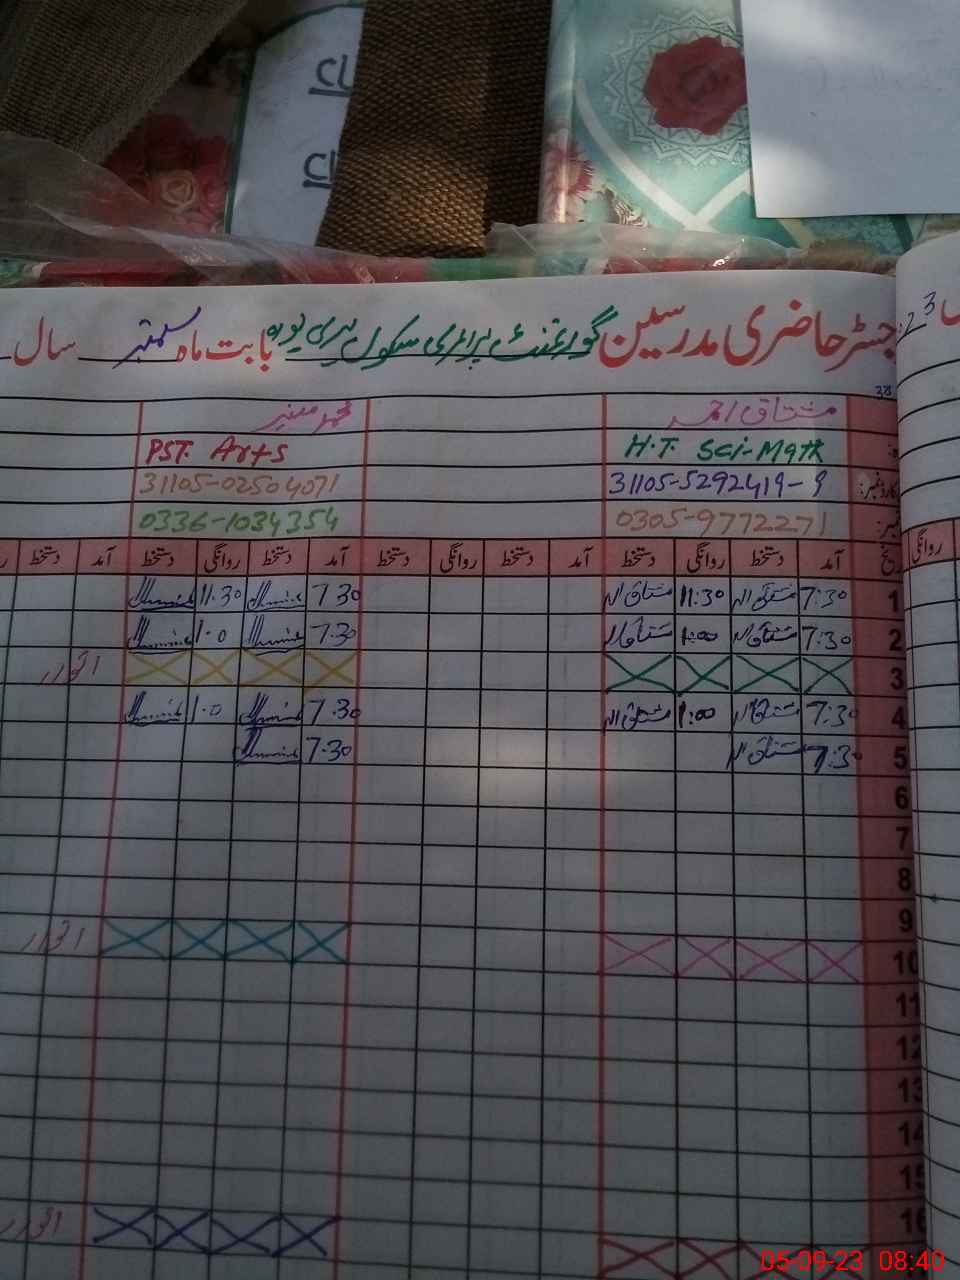 رجسٹر حاضری مدرسین گورنمنٹ پرائمری سکول بابت ماہ ستمبر سال
38
مشتاق احمد محمد منیر
H.T. Sci-Math PST. Arts
31105-5292419-9 31105-02504071
0305-9772271 0336-1034354
آمد دستخط روانگی دستخط دستخط روانگی دستخط آمد دستخط روانگی دستخط آمد دستخط
روانگی
1 7:30 مشتاق احمد 11:30 مشتاق احمد 7.30 11.30
2 7:30 مشتاق احمد 1:00 مشتاق احمد 7.30 1.0
3 اتوار
4 7:30 مشتاق احمد 1:00 مشتاق احمد 7.30 1.0
5 7:30 مشتاق احمد 7.30
6
7
8
9
10 اتوار
11
12
13
14
15
16
اتوار
05-09-23 08:40